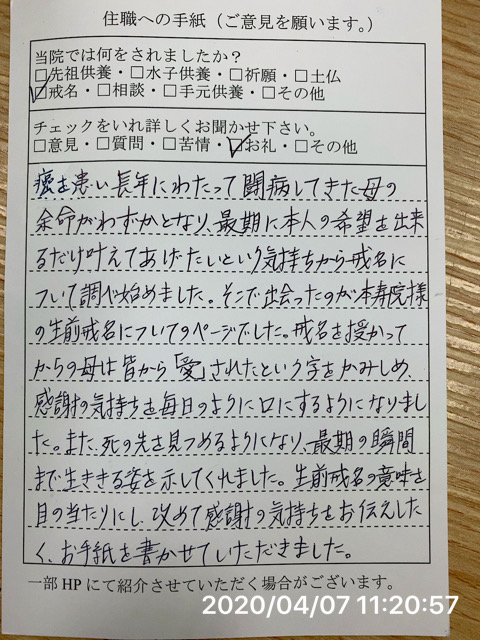 住職への手紙(ご意見を願います。)
当院では何をされましたか?
□先祖供養・□水子供養・□祈願・□土仏
☑戒名・□相談・□手元供養・□その他
チェックをいれ詳しくお聞かせ下さい。
□意見・□質問・□苦情・☑お礼・□その他
癌を患い長年にわたって闘病してきた母の
余命がわずかとなり、最期に本人の希望を出来
るだけ叶えてあげたいという気持ちから戒名に
ついて調べ始めました。そこで出会ったのが本寿院様
の生前戒名についてのページでした。戒名を授かって
からの母は皆から「愛」されたという字をかみしめ、
感謝の気持ちを毎日のように口にするようになりまし
た。また、死の先を見つめるようになり、最期の瞬間
まで生ききる姿を示してくれました。生前戒名の意味を
目の当たりにし、改めて感謝の気持ちをお伝えした
く、お手紙を書かせていただきました。
一部HPにて紹介させていただく場合がございます。
2020/04/07 11:20:57